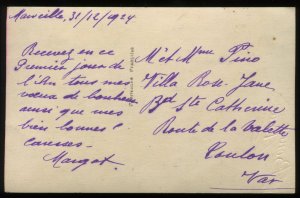 Marseille, 31/12/1924
Recevez en ce
Premier jour de
l'An tous mes
vœux de bonheur
ainsi que mes
bien bonnes
caresses -
Margot.
M et Mme Pino
Villa Rose-Jane
Bd Ste Catherine
Route de la Valette
Toulon
Var